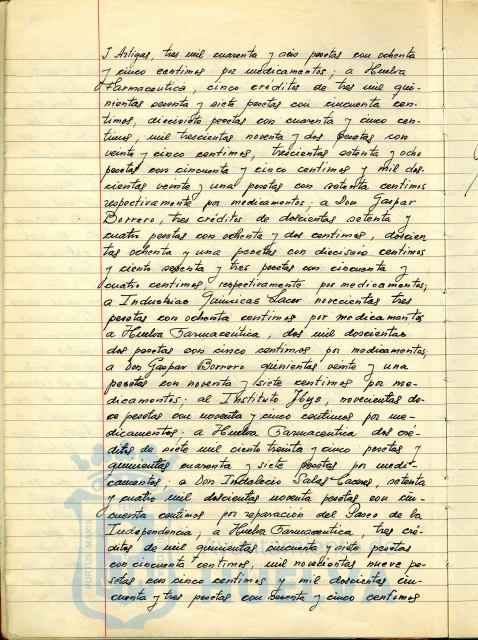 J Artigas, tres mil cuarenta y seis pesetas con ochenta
y cinco centimos por medicamentos; a Huelva
Farmaceutica, cinco créditos de tres mil qui-
nientas setenta y siete pesetas con cincuenta cen-
timos, diecisiete pesetas con cuarenta y cinco cen-
timos, mil trescientas noventa y dos pesetas con
veinte y cinco centimos, trescientas setenta y ocho
pesetas con cincuenta y cinco centimos y mil dos-
cientas veinte y una pesetas con setenta centimos
respectivamente por medicamentos; a Don Gaspar
Borrero, tres créditos de doscientas setenta y
cuatro pesetas con ochenta y dos centimos, doscien
tas ochenta y una pesetas con dieciseis centimos
y ciento sesenta y tres pesetas con cincuenta y
cuatro centimos, respectivamente por medicamentos;
a Industrias Quimicas Lacer novecientas tres
pesetas con ochenta centimos por medicamentos
a Huelva Farmaceutica, dos mil doscientas
dos pesetas con cinco centimos por medicamentos;
a Don Gaspar Borrero quinientas veinte y una
pesetas con noventa y siete centimos por me-
dicamentos; al Instituto Ibys, novecientas do-
ce pesetas con noventa y cinco centimos por me-
dicamentos; a Huelva Farmaceutica dos cré-
ditos de siete mil ciento treinta y cinco pesetas y
quinientas cuarenta y siete pesetas por medi-
camentos; a Don Indalecio Salas Casas, setenta
y cuatro mil doscientas noventa pesetas con cin-
cuenta centimos por reparación del Paseo de la
Independencia; a Huelva Farmaceutica, tres cré-
ditos de mil quinientas cincuenta y siete pesetas
con cincuenta centimos, mil novecientas nueve pe-
setas con cinco centimos y mil doscientas cin-
cuenta y tres pesetas con sesenta y cinco centimos
PORTUS MARIS